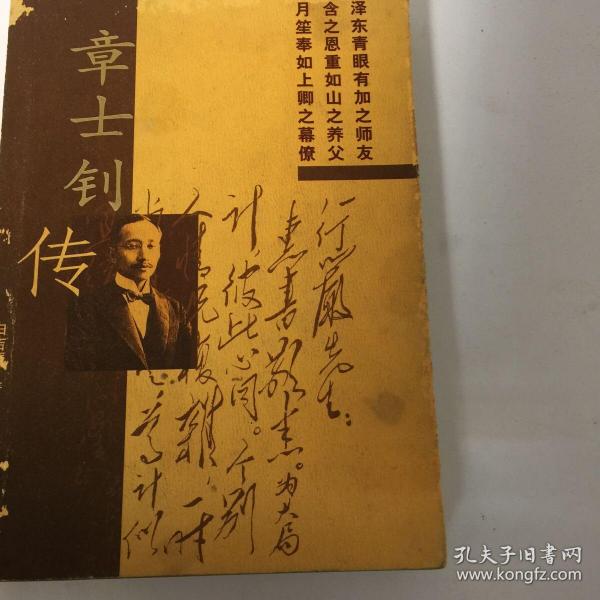 章士钊
传
泽东青眼有加之师友
含之恩重如山之养父
月笙奉如上卿之幕僚
行严先生：
惠书敬悉。为大局
计，彼此心同。个别
人情况复杂，一时
为计似
孔夫子旧书网
www.kongfz.com